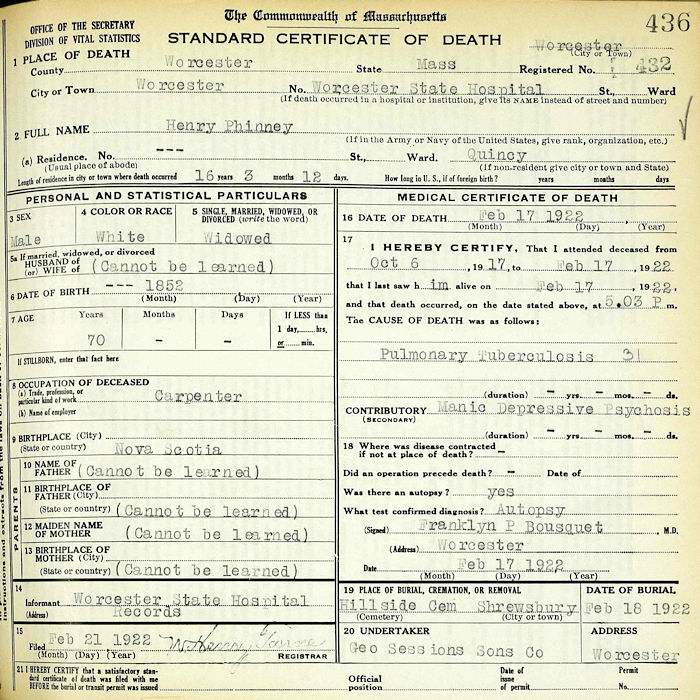 The Commonwealth of Massachusetts
436
OFFICE OF THE SECRETARY
DIVISION OF VITAL STATISTICS
STANDARD CERTIFICATE OF DEATH
Worcester
(City or Town)
1 PLACE OF DEATH
County Worcester State Mass Registered No. 432
City or Town Worcester No. Worcester State Hospital St., Ward
(If death occurred in a hospital or institution, give its NAME instead of street and number)
2 FULL NAME Henry Phinney
(If in the Army or Navy of the United States, give rank, organization, etc.)
(a) Residence. No. --- St., Ward. Quincy
(Usual place of abode) (If non-resident give city or town and State)
Length of residence in city or town where death occurred 16 years 3 months 12 days. How long in U. S., if of foreign birth? years months days
PERSONAL AND STATISTICAL PARTICULARS
3 SEX 4 COLOR OR RACE 5 SINGLE, MARRIED, WIDOWED, OR DIVORCED (write the word)
Male White Widowed
5a If married, widowed, or divorced
HUSBAND of
(or) WIFE of (Cannot be learned)
6 DATE OF BIRTH --- 1852
(Month) (Day) (Year)
7 AGE Years Months Days If LESS than
1 day,......hrs.
70 - - or......min.
If STILLBORN, enter that fact here
8 OCCUPATION OF DECEASED
(a) Trade, profession, or
particular kind of work Carpenter
(b) Name of employer
9 BIRTHPLACE (City)
(State or country) Nova Scotia
PARENTS
10 NAME OF
FATHER (Cannot be learned)
11 BIRTHPLACE OF
FATHER (City)
(State or country) (Cannot be learned)
12 MAIDEN NAME
OF MOTHER (Cannot be learned)
13 BIRTHPLACE OF
MOTHER (City)
(State or country) (Cannot be learned)
14
Informant Worcester State Hospital
(Address) Records
15
Filed Feb 21 1922
(Month) (Day) (Year) REGISTRAR
21 I HEREBY CERTIFY that a satisfactory stan-
dard certificate of death was filed with me
BEFORE the burial or transit permit was issued
MEDICAL CERTIFICATE OF DEATH
16 DATE OF DEATH Feb 17 1922
(Month) (Day) (Year)
17
I HEREBY CERTIFY, That I attended deceased from
Oct 6, 1917, to Feb 17, 1922
that I last saw him alive on Feb 17, 1922,
and that death occurred, on the date stated above, at 5.03 P m.
The CAUSE OF DEATH was as follows:
Pulmonary Tuberculosis 31
(duration) - yrs. - mos. - ds.
CONTRIBUTORY Manic Depressive Psychosis
(SECONDARY)
(duration) - yrs. - mos. - ds.
18 Where was disease contracted
if not at place of death? -
Did an operation precede death? - Date of
Was there an autopsy? yes
What test confirmed diagnosis? Autopsy
(Signed) Franklyn P Bousquet, M.D.
(Address) Worcester
Date Feb 17 1922
(Month) (Day) (Year)
19 PLACE OF BURIAL, CREMATION, OR REMOVAL DATE OF BURIAL
Hillside Cem Shrewsbury Feb 18 1922
(Cemetery) (City or town)
20 UNDERTAKER ADDRESS
Geo Sessions Sons Co Worcester
Official
position
Date of
issue
of permit
Permit
No.